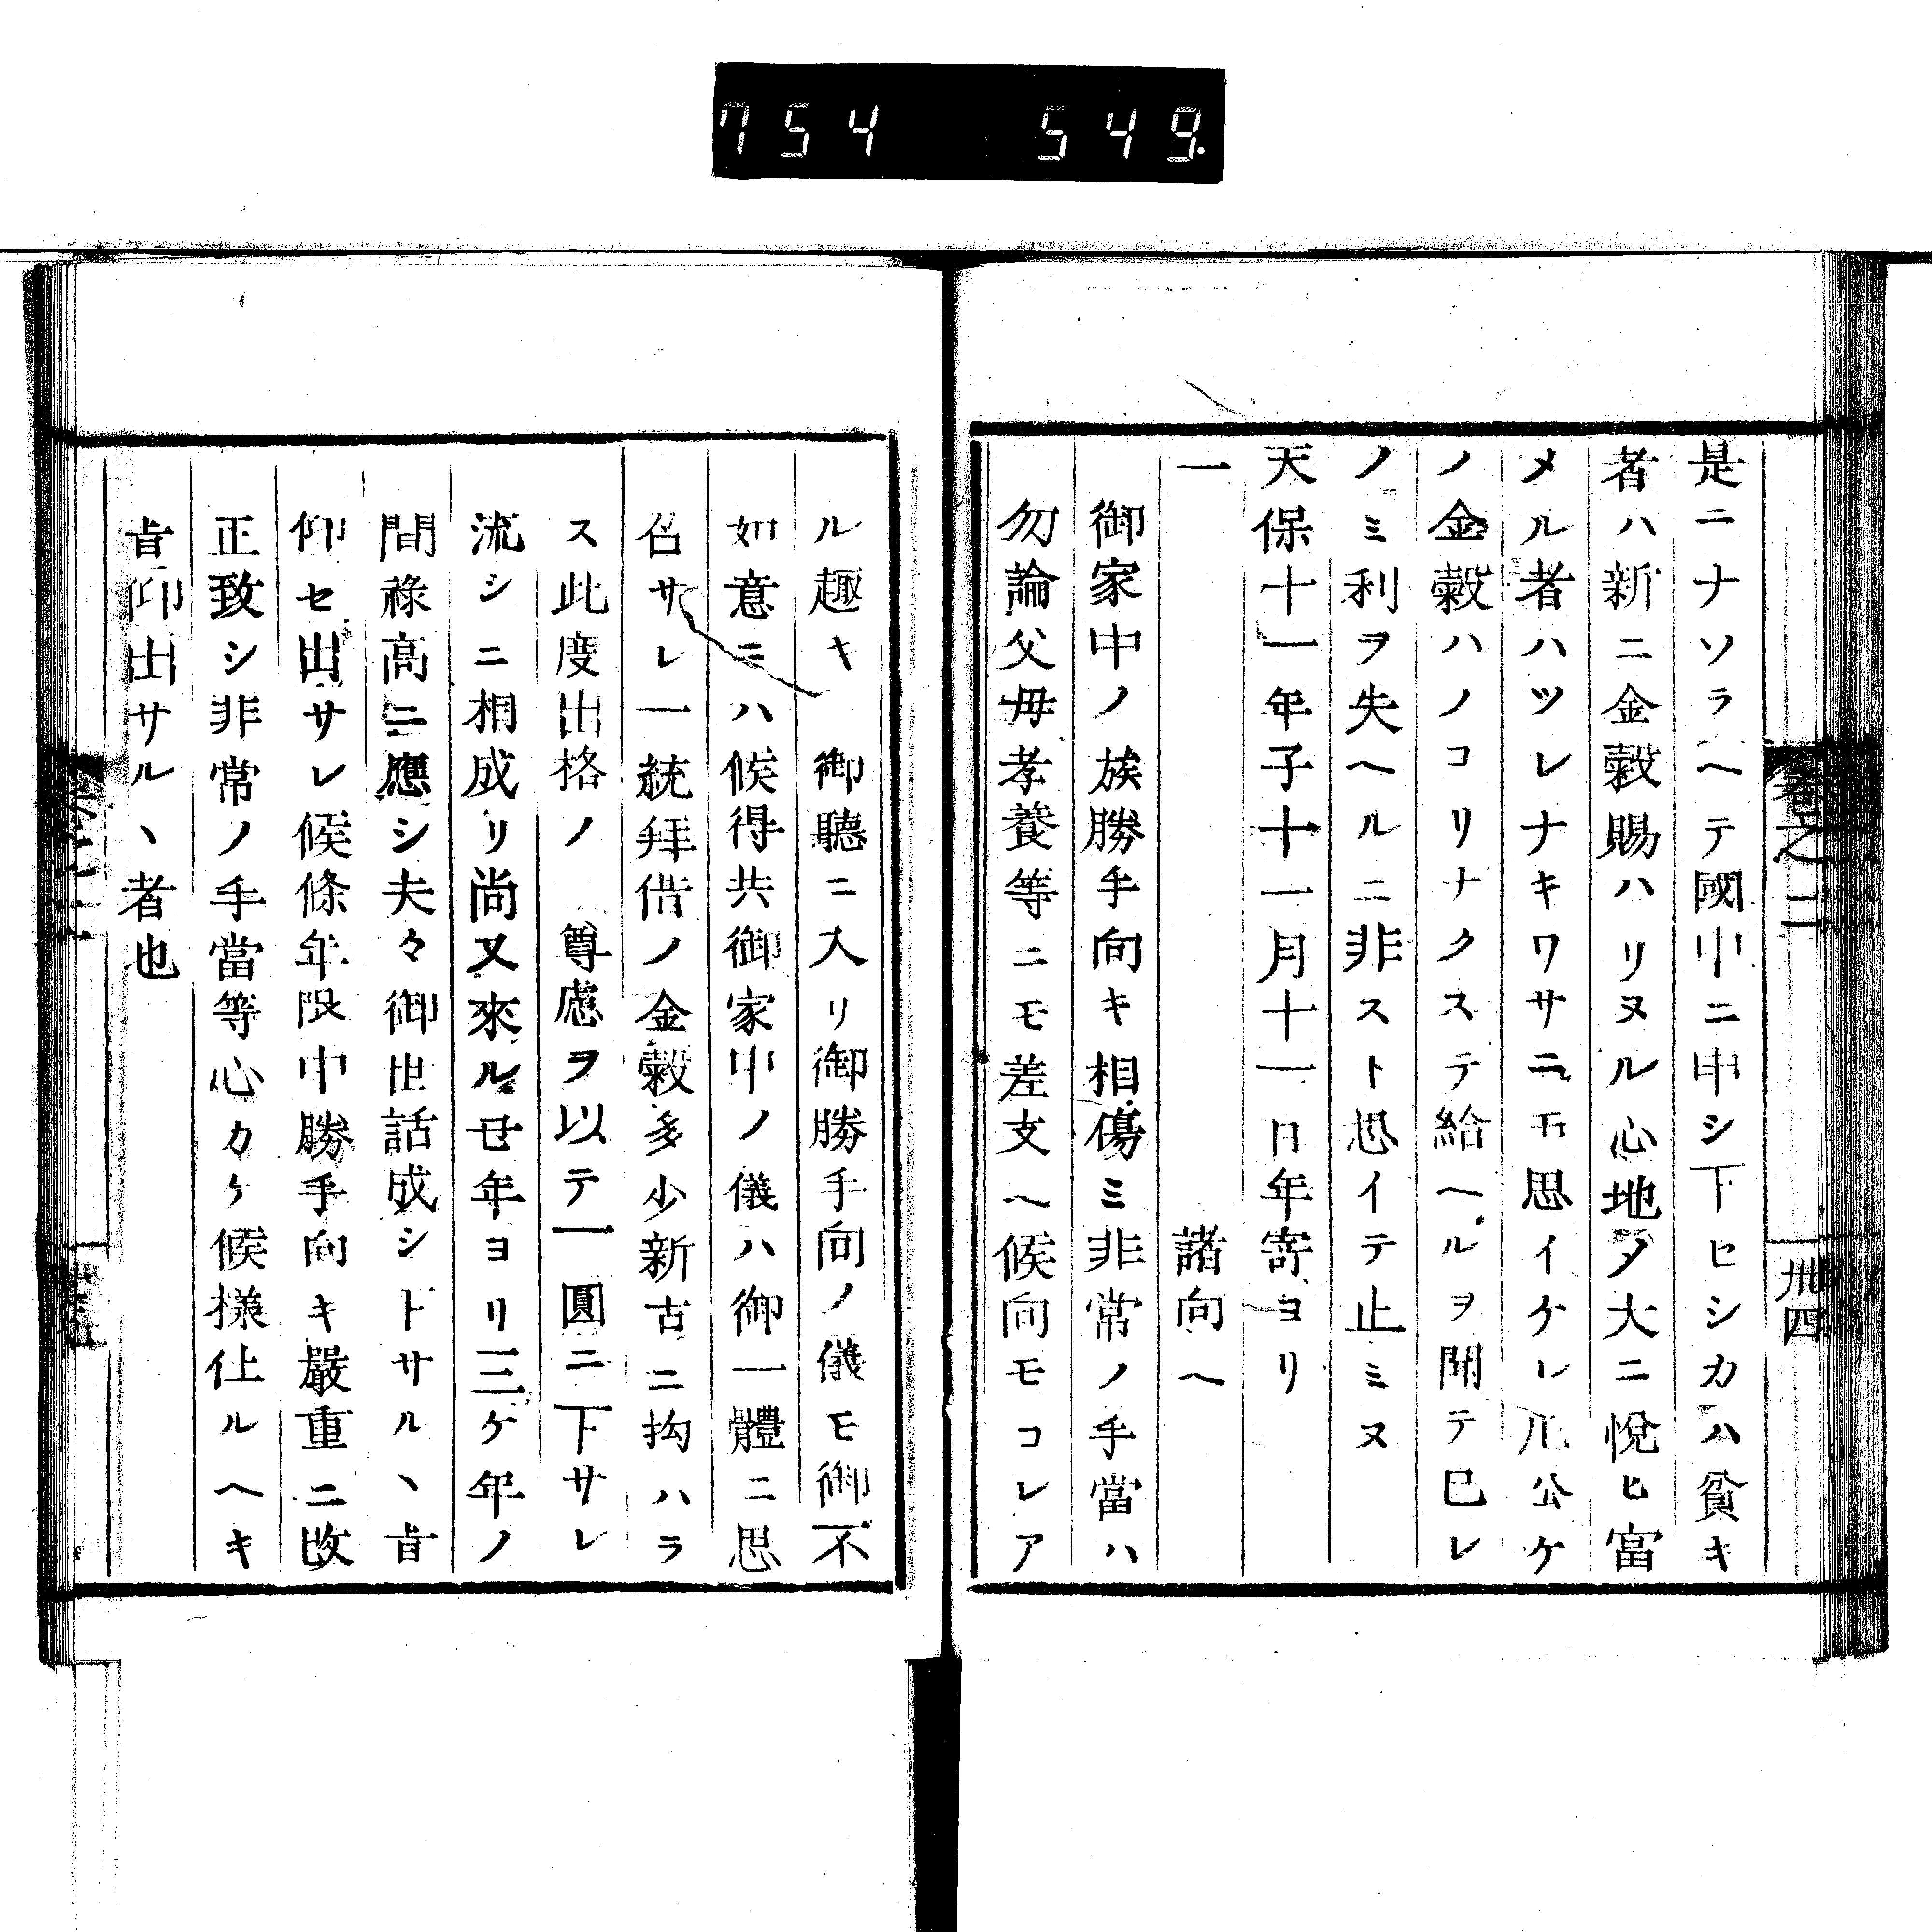 754 549.
卷之二
卅四
是ニナソラヘテ國中ニ申シ下ヒシカハ貧キ
者ハ新ニ金穀賜ハリヌル心地タ大ニ悅ヒ富
メル者ハツレナキワサニ𪜈思イケレ𠁅公ケ
ノ金穀ハノコリナクステ給ヘルヲ聞テ已レ
ノミ利ヲ失ヘルニ非スト思イテ止ミヌ
天保十一年子十一月十一日年寄ヨリ
一 諸向ヘ
御家中ノ族勝手向キ相傷ミ非常ノ手當ハ
勿論父母孝養等ニモ差支ヘ候向モコレア
ル趣キ 御聽ニ入リ御勝手向ノ儀モ御不
如意ニハ候得共御家中ノ儀ハ御一體ニ思
召サレ一統拜借ノ金穀多少新古ニ拘ハラ
ス此度出格ノ 尊慮ヲ以テ一圓ニ下サレ
流シニ相成リ尚又來ル丗年ヨリ三ケ年ノ
間祿高ニ應シ夫々御世話成シ下サルヽ㫖
仰セ出サレ候條年限中勝手向キ嚴重ニ改
正致シ非常ノ手當等心カケ候樣仕ルヘキ
㫖仰出サルヽ者也